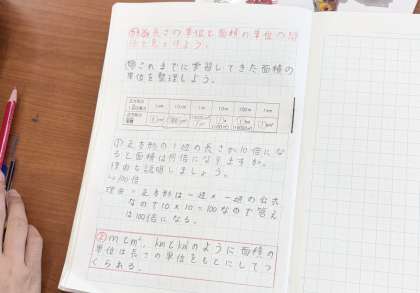 長さの単位と面積の単位の関
係を見つけよう。
これまでに学習してきた面積の
単位を整理しよう。
1cm 10cm 1m 10m 100m 1km
①正方形の1辺の長さが10倍にな
ると面積は何倍になりますか。
理由も説明しましょう。
→100倍
理由・正方形は一辺×一辺の公式
なので10×10=100なので答え
は100倍になる。
mとm²、kmとkm²のように面積の
単位は長さの単位をもとにしてつ
くられる。